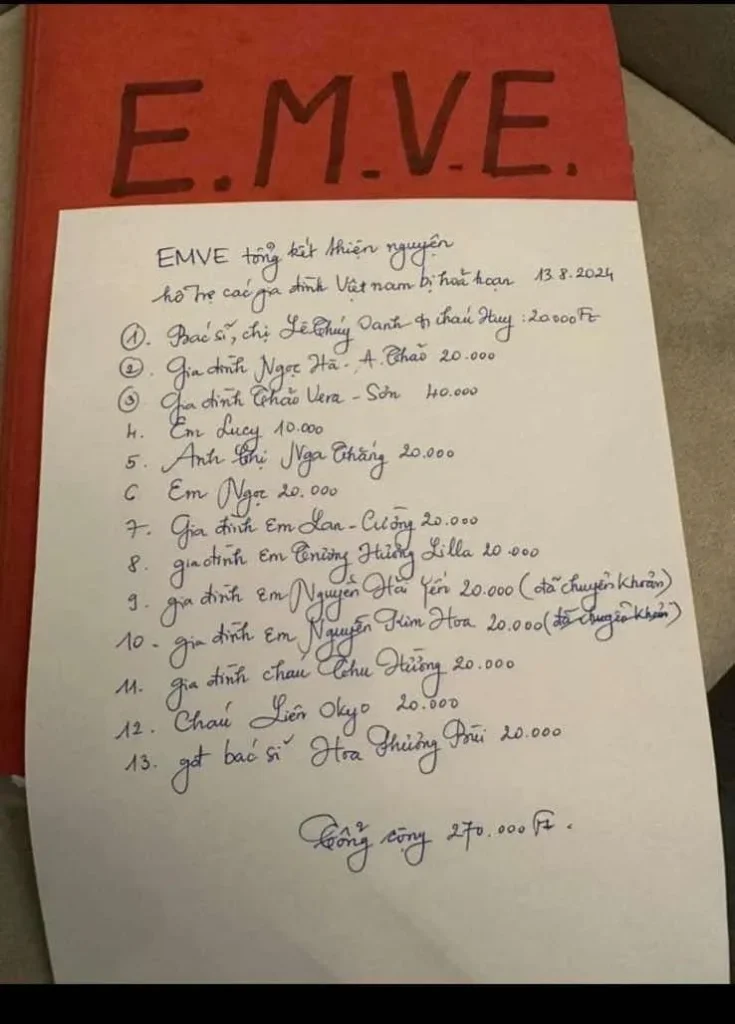 E.M.V.E.
EMVE tổng kết thiện nguyện
hỗ trợ các gia đình Việt nam bị hoả hoạn 13.8.2024
①. Bác sĩ, chị Lê Thúy Oanh & cháu Huy : 20000 Ft
②. Gia đình Ngọc Hà - A. Thảo 20.000
③ Gia đình Thảo Vera - Sơn 40.000
4. Em Lucy 10.000
5. Anh Chị Nga Thắng 20.000
6 Em Ngọc 20.000
7. Gia đình Em Lan - Cường 20.000
8. gia đình Em Trương Hương Lilla 20.000
9. gia đình em Nguyễn Hải Yến 20.000 (đã chuyển khoản)
10 - gia đình Em Nguyễn Kim Hoa 20.000 (đã chuyển khoản)
11. gia đình cháu Thu Hường 20.000
12. Cháu Liên Okyo 20.000
13. gđ bác sĩ Hoa Phượng Bùi 20.000
Tổng cộng 270.000 Ft.